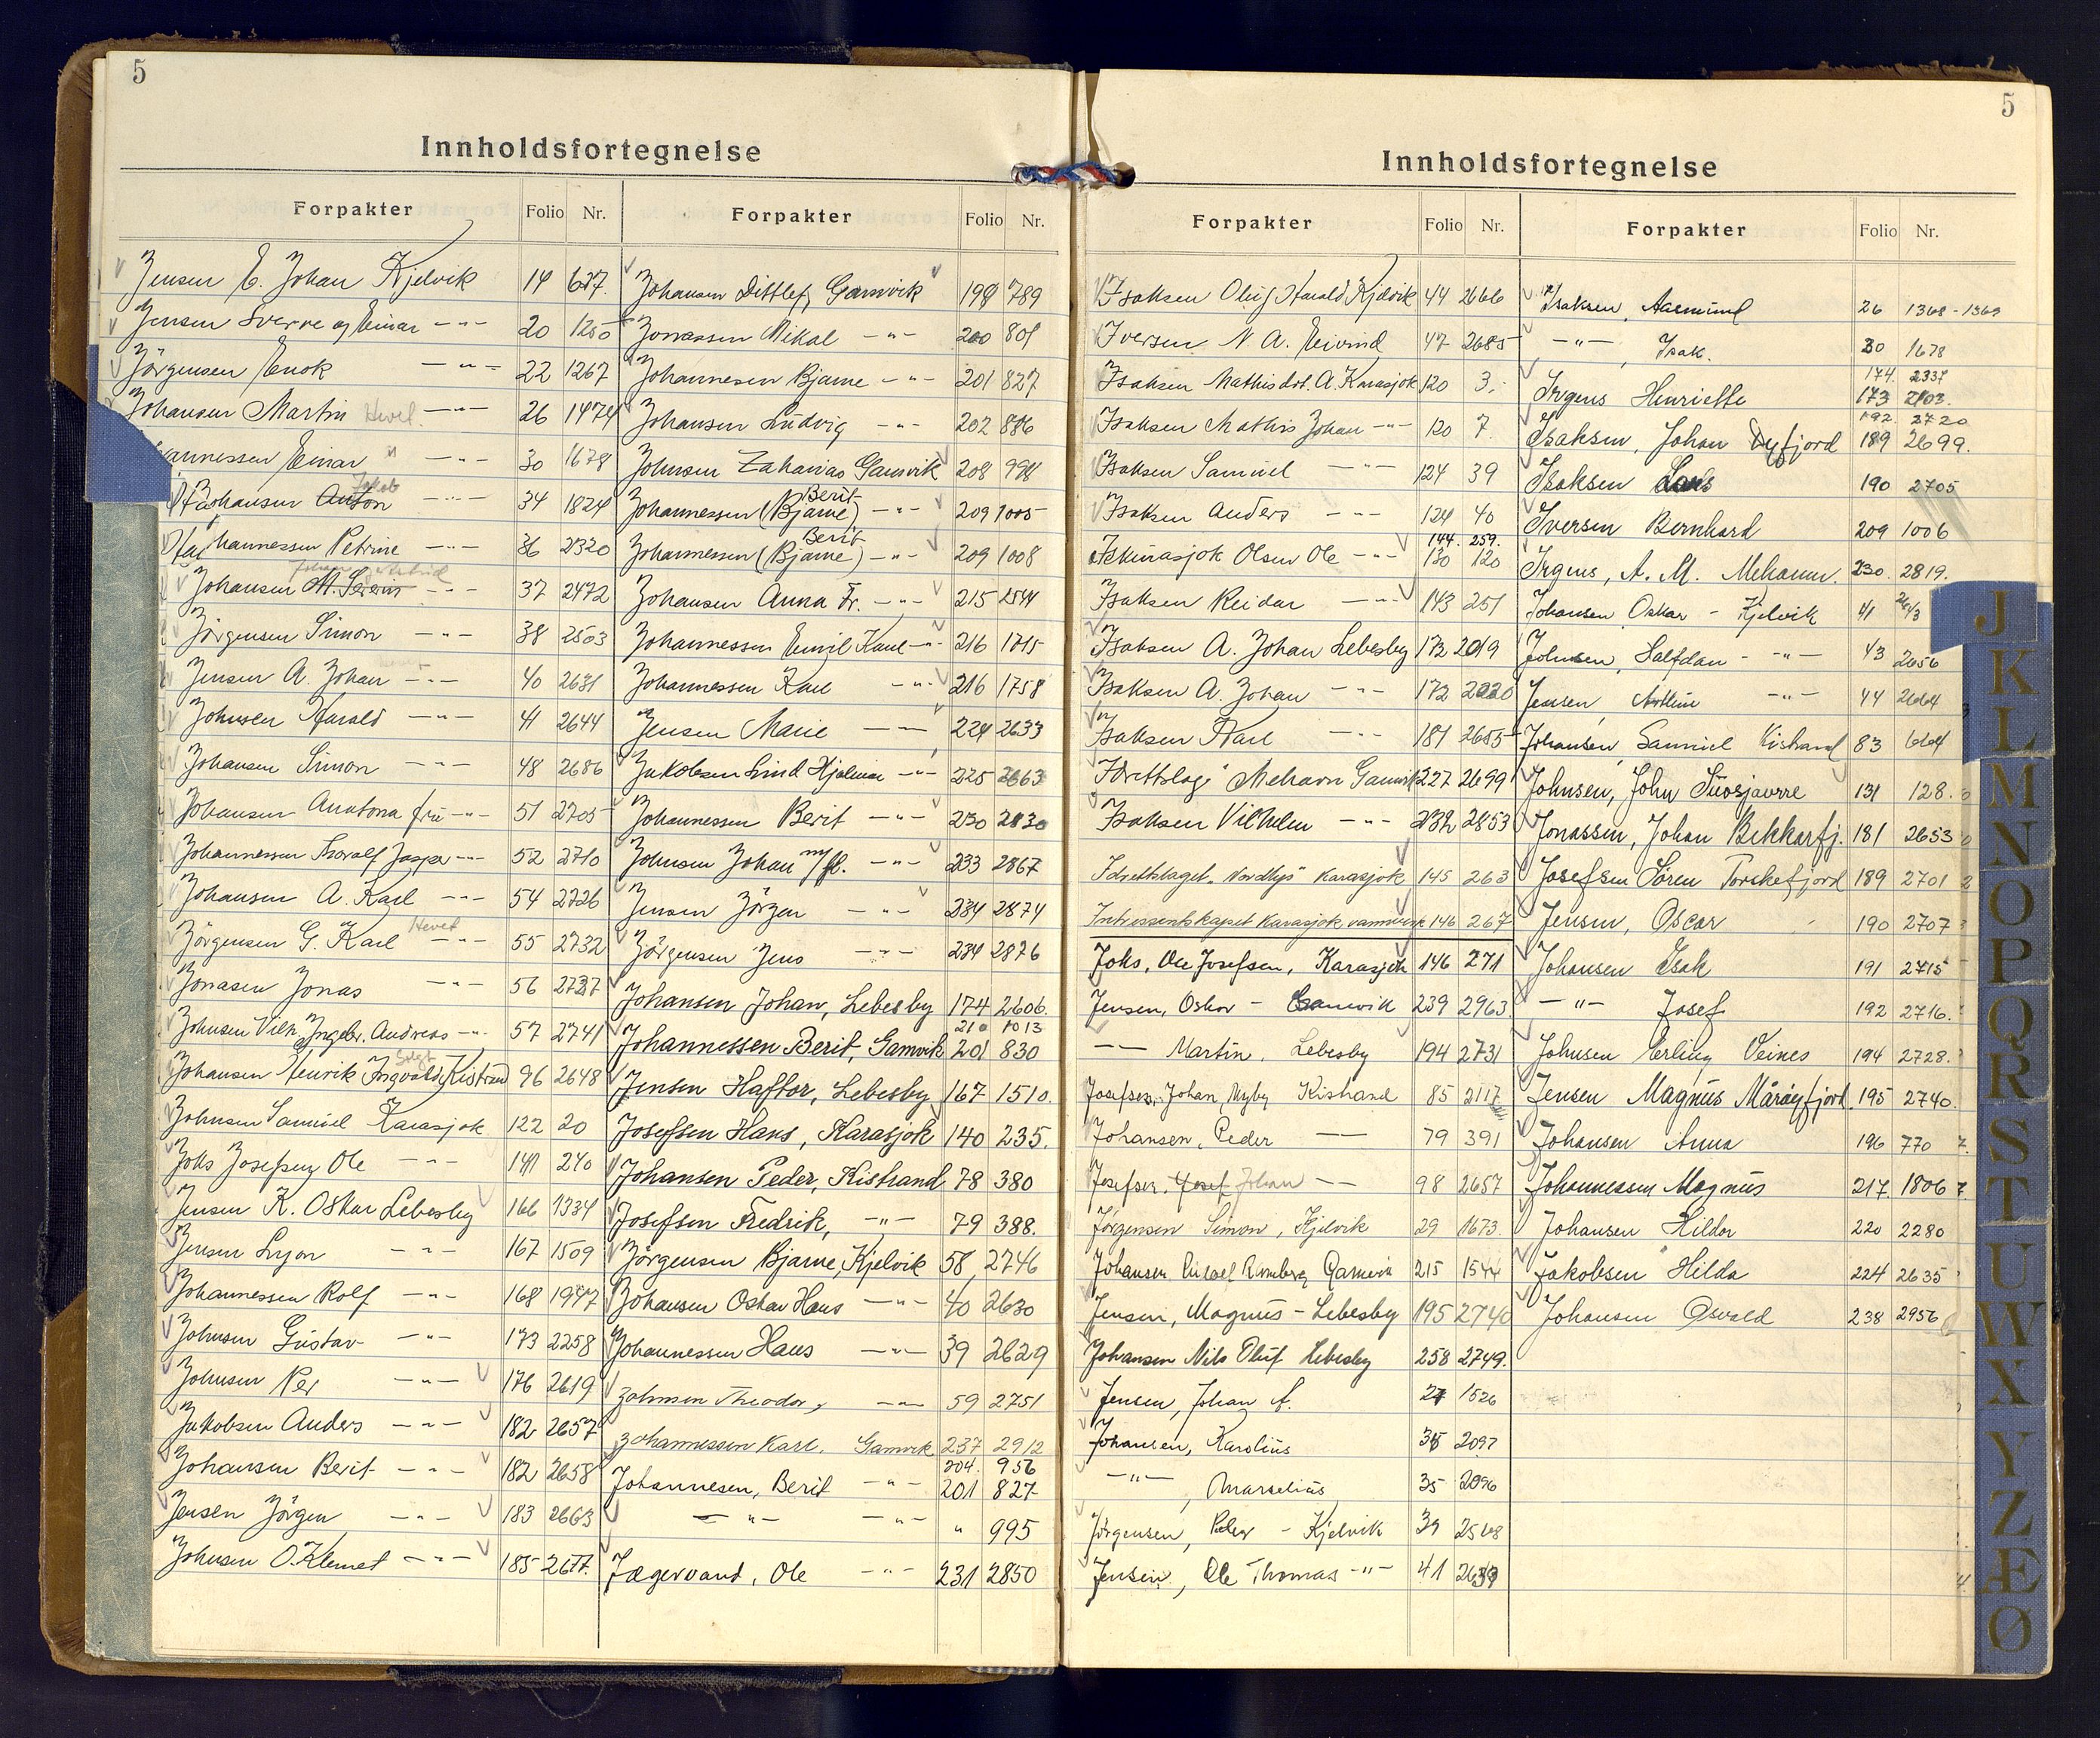 5
Innholdsfortegnelse
Forpakter Folio Nr. Forpakter Folio Nr.
Jensen E. Johan Kjelvik 14 637.
Jensen Sverre og Einar -"- 20 1250
Jörgensen Enok -"- 22 1267
Johansen Martin Hevet. -"- 26 1474
annessen Einar -"- 30 1678
Johansen Anton Jakob -"- 34 1824
hannessen Petrine -"- 36 2320
Johansen M. Severin -"- 37 2472
Jörgensen Simon -"- 38 2503
Jensen A. Johan -"- 40 2631
Johnsen Harald -"- 41 2644
Johansen Simon -"- 48 2686
Johansen Anatona fru -"- 51 2705
Johannessen Thoralf Jasper -"- 52 2710
Johansen A. Karl -"- 54 2726
Jörgensen G. Karl Hevet -"- 55 2732
Jonasen Jonas -"- 56 2737
Johnsen Vilh. Ingebr. Andreas -"- 57 2741
Johansen Henrik Ingvald Kistrand 96 2648
Johnsen Samuel Karasjok 122 20
Joks Josefsen Ole -"- 141 240
Jensen K. Oskar Lebesby 166 1334
Jensen Lryon -"- 167 1509
Johannessen Rolf -"- 168 1947
Johnsen Gustav -"- 173 2258
Johnsen Per -"- 176 2619
Jakobsen Anders -"- 182 2657
Johansen Berit -"- 182 2658
Jensen Jörgen -"- 183 2663
Johnsen O. Klemet -"- 185 2677.
Johansen Dittlef, Gamvik 198 789
Jonassen Mikal -"- 200 801
Johannesen Bjarne -"- 201 827
Johansen Ludvig -"- 202 886
Johnsen Zakarias Gamvik 208 998
Johannessen (Bjarne) Berit -"- 209 1005
Johannessen (Bjarne) Berit -"- 209 1008
Johansen Anna Fr. -"- 215 1544
Johannessen Emil Karl -"- 216 1715
Johannessen Karl -"- 216 1758
Jensen Marie -"- 224 2633
Jakobsen Lind Hjalmar -"- 225 2663
Johannessen Berit -"- 230 2830
Johnsen Johan m/fl. -"- 233 2867
Jensen Jörgen -"- 234 2874
Jörgensen Jens -"- 234 2876
Johansen Johan, Lebesby 174 2606.
210 1013
Johannessen Berit, Gamvik 201 830
Jensen Haftor, Lebesby 167 1510.
Josefsen Hans, Karasjok 140 235.
Johansen Peder, Kistrand 78 380
Josefsen Fredrik, -"- 79 388.
Jörgensen Bjarne, Kjelvik 58, 2746
Johansen Oskar Hans -"- 40 2630
Johannessen Hans -"- 39 2629
Johnsen Theodor, -"- 59 2751
Johannessen Karl. Gamvik 237 2912
204. 956
Johannesen, Berit -"- 201 827
-"- -"- " 995
Jægervand, Ole -"- 231 2850
5
Innholdsfortegnelse
Forpakter Folio Nr. Forpakter Folio Nr.
Isaksen Oluf Harald Kjelvik 44 2666
Iversen N. A. Eivind 47 2685
Isaksen Mathisdat. A. Karasjok 120 3.
Isaksen Mathis Johan -"- 120 7.
Isaksen Samuel -"- 124 39
Isaksen Anders -"- 124 40
144. 259.
Iskurasjok Olsen Ole -"- 130 120
Isaksen Reidar -"- 143 251
Isaksen A. Johan Lebesby 172 2019
Isaksen A. Johan -"- 172 2020
Isaksen Karl -"- 181 2655
Idrettslag Mehavn Gamvik 227 2699
Isaksen Vilhelm -"- 232 2853
Idrettslaget "Nordlys" Karasjok 145 263
Interessentskapet Karasjok vannverk 146 267
Joks, Ole Josefsen, Karasjok 146 271
Jensen, Oskar - Gamvik 239 2963
-"- Martin, Lebesby 194 2731
Josefsen, Johan Nyby Kistrand 85 2117
Johansen, Peder -"- 79 391
Josefsen, Josef Johan -"- 98 2657
Jörgensen Simon, Kjelvik 29 1673.
Johansen Gamvik 215 1544
Jensen, Magnus - Lebesby 195 2740
Johansen Nils Oluf Lebesby 258 2749.
Jensen, Johan A. 27 1526
Johansen, Karolius 35 2097
-"-, Marselius 35 2096
Jörgensen, Peder - Kjelvik 39 2508
Jensen, Ole Thomas -"- 41 2639
Isaksen, Aasmund 26 1368-1369
-"-, Isak. 30 1678
174. 2337
Irgens Henriette 173 2103.
192. 2720
Isaksen, Johan Dyfjord 189 2699.
Isaksen Lars 190 2705
Iversen Bernhard 209 1006
Irgens, A. M. Mehamn. 230. 2819.
Johansen Oskar - Kjelvik 41
Johnsen, Halfdan - -"- 43 2656
Jensen, Arthur -"- 44 2664
Johansen, Samuel Kistrand 83 664
Johnsen, John Suosjavrre 131 128.
Jonassen, Johan Bekkarfj. 181 2653
Josefsen Sören Torskefjord 189 2701
Jensen, Oscar 190 2707
Johansen Isak 191 2715
-"- Josef 192 2716.
Johnsen Erling Veines 194 2728.
Jensen Magnus Måröyfjord. 195 2740.
Johansen Anna 196 770
Johannessen Magnus 217. 1806
Johansen Hildor 220 2280
Jakobsen Hilda 224 2635
Johansen Osvald 238 2956
J
K
L
M
N
O
P
Q
R
S
T
U
W
X
Y
Z
Æ
Ø